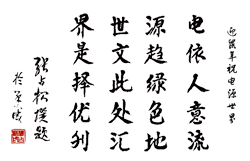 迎年祝电源世界
电依人意流
源趋绿色地
世文此处汇
界是择优刊
张占松撰题
於